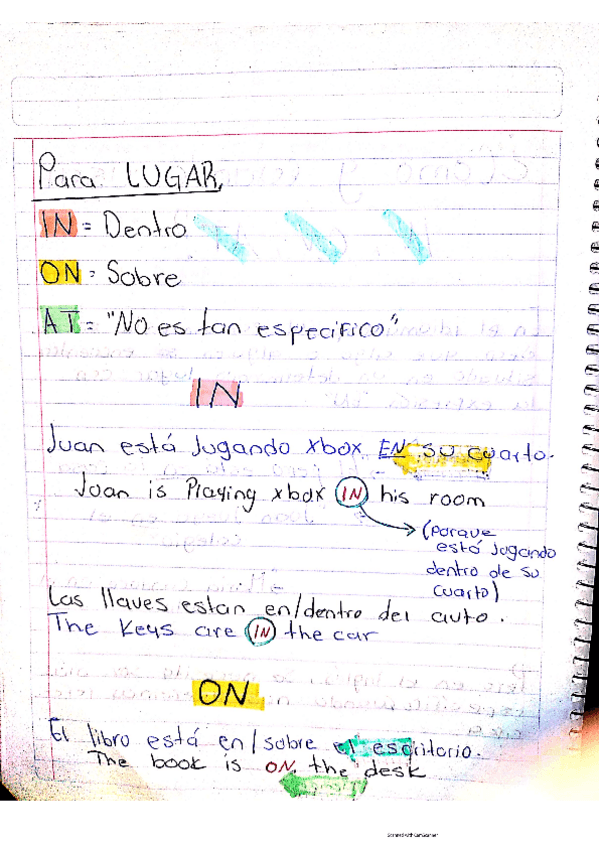 Para LUGAR.
IN = Dentro
ON = Sobre
AT = "No es tan especifico"
IN
Juan está Jugando xbox EN su cuarto.
Juan is Playing xbox IN his room
(porque
está Jugando
dentro de su
cuarto)
Las llaves estan en/dentro del auto.
The Keys are IN the car
ON
El libro está en/sobre el escritorio.
The book is ON the desk
Scanned with CamScanner